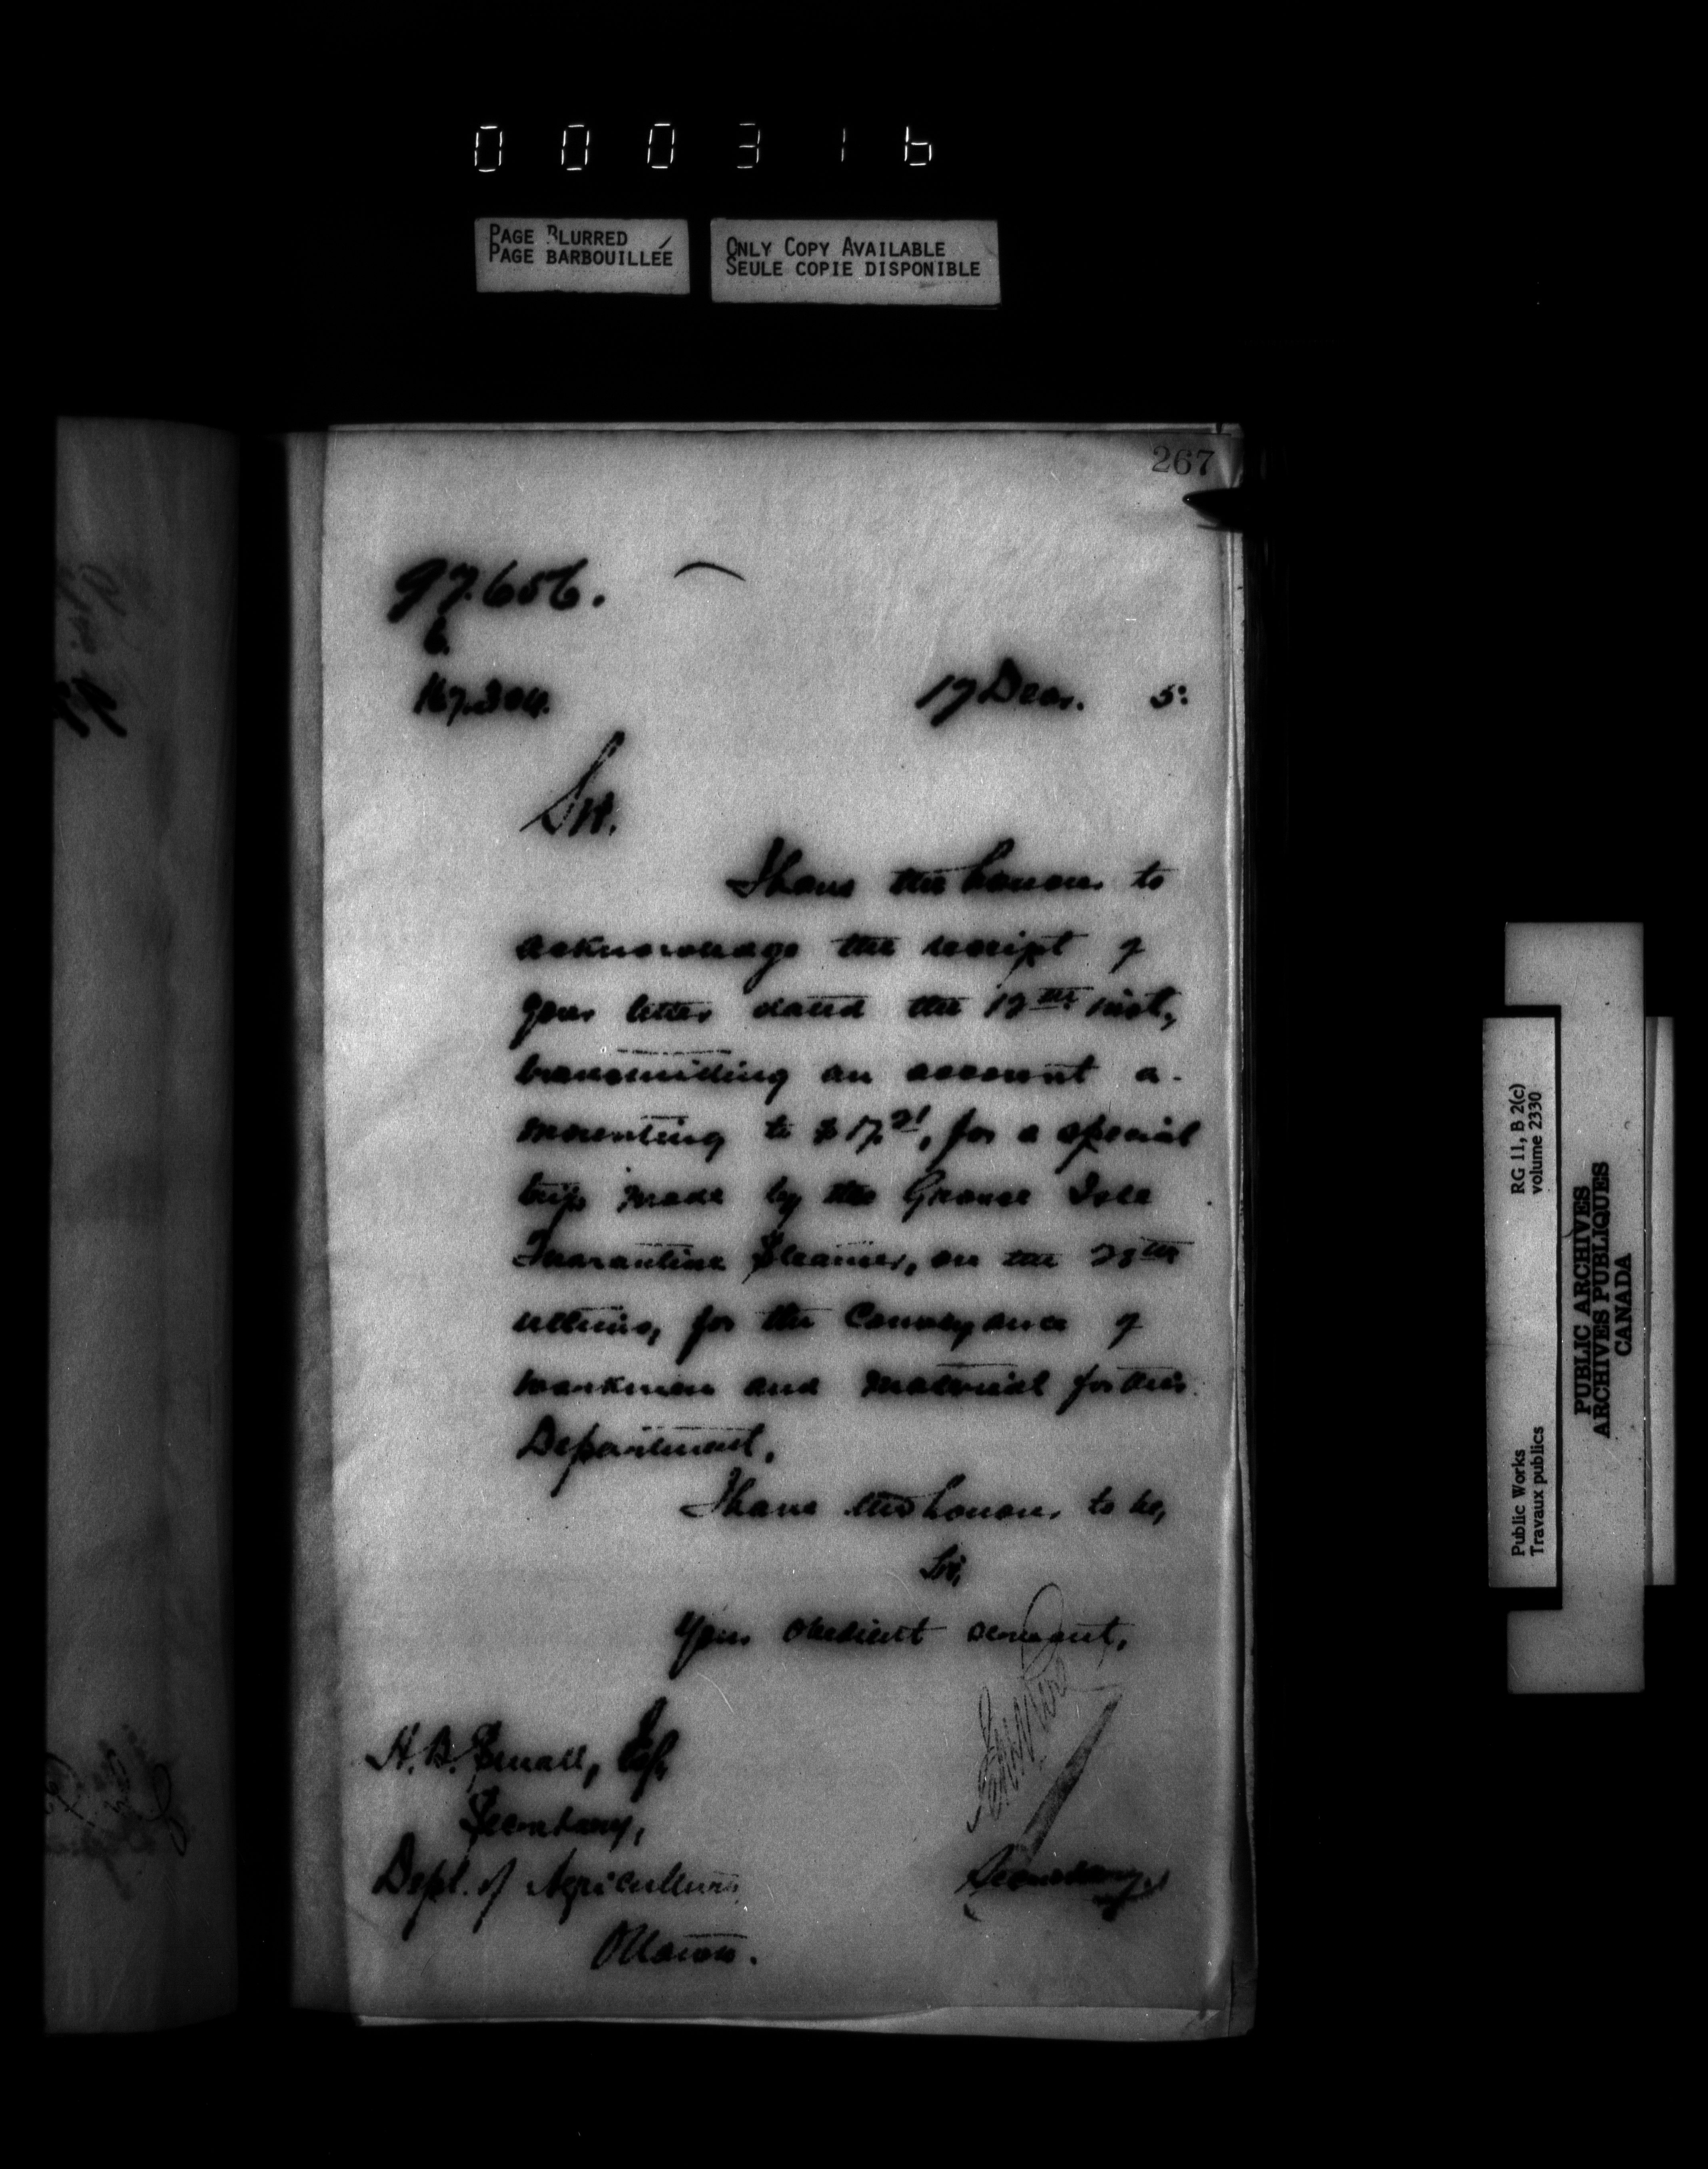 000316
PAGE BLURRED
PAGE BARBOUILLÉE
ONLY COPY AVAILABLE
SEULE COPIE DISPONIBLE
267
97.656.
17 Decr. 5.
Sir.
I have the honour to
acknowledge the receipt of
your letter dated the inst,
transmitting an account a-
mounting to for a special
trip made by the Grosse Isle
Quarantine Steamer, on the
ultimo, for the Conveyance of
workmen and material for this
Department.
I have the honour to be,
Sir,
Your obedient servant,
H. B. Small, Esq.
Secretary,
Dept. of Agriculture
Ottawa.
Secretary.
RG 11, B 2(c)
volume 2330
Public Works
Travaux publics
PUBLIC ARCHIVES
ARCHIVES PUBLIQUES
CANADA